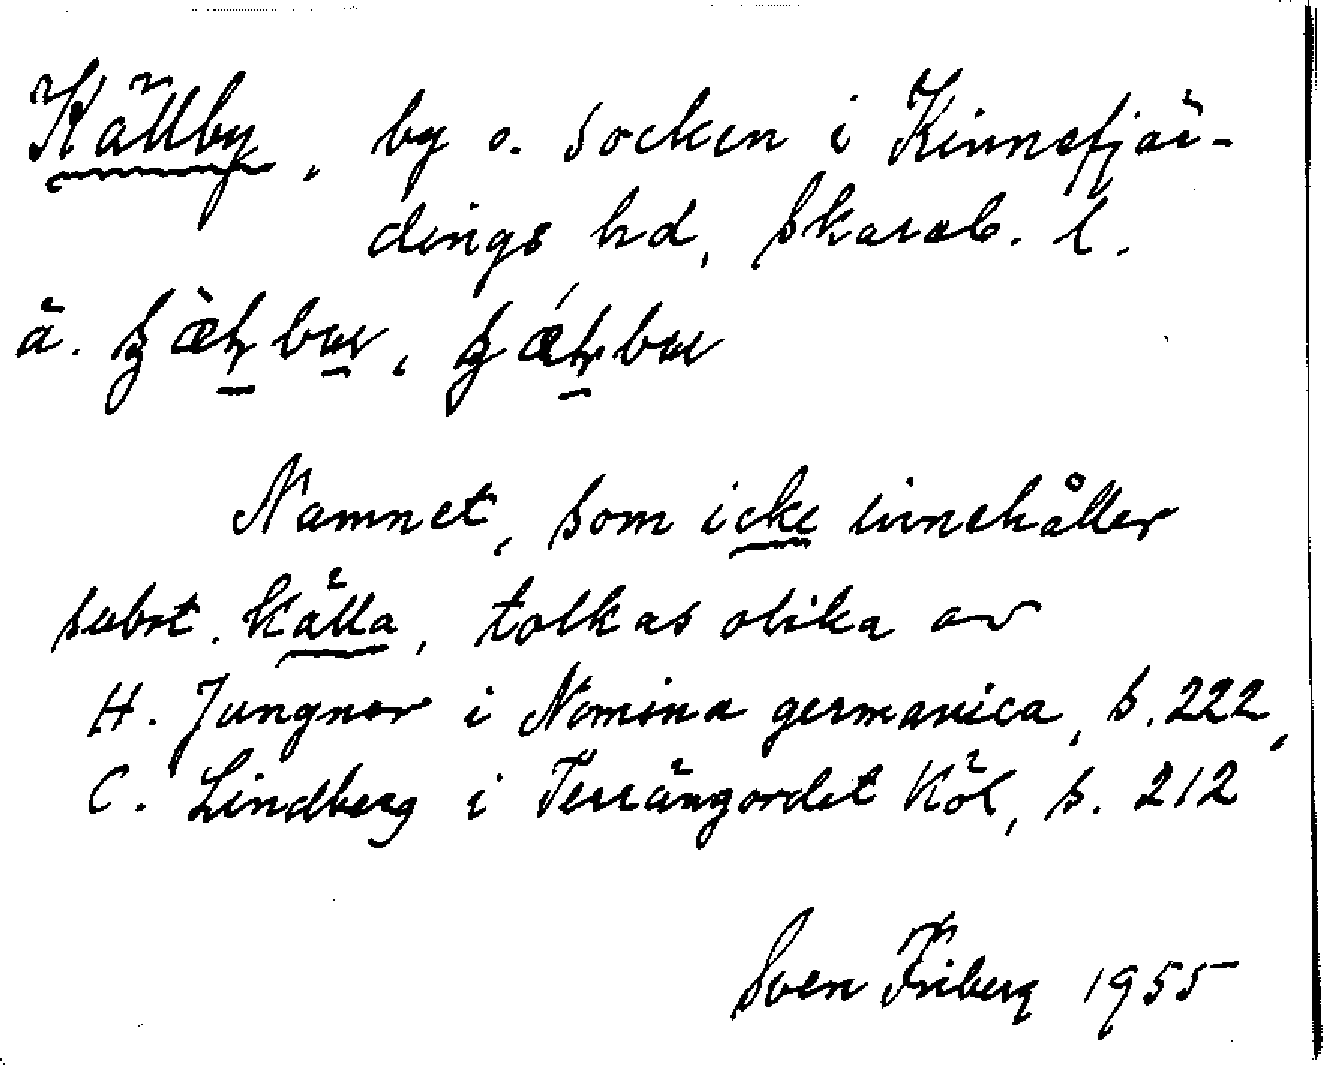 Källby, by o. socken i Kinnefjär-
dings hd, Skarab. l.
ä.
Namnet, som icke innehåller
subst. källa, tolkas olika av
H. Jungner i Nomina germanica, s. 222,
C. Lindberg i Terrängordet Köl, s. 212
Sven Friberg 1955